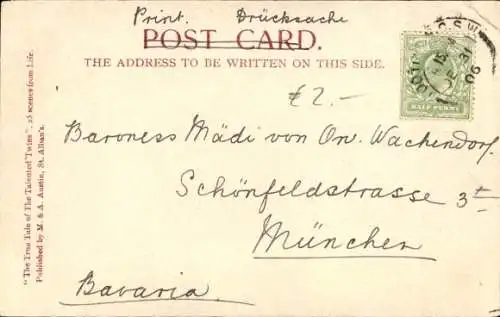 Print. Drücksache
POST CARD.
THE ADDRESS TO BE WRITTEN ON THIS SIDE.
HALF PENNY
£2.-
Baroness Mädi von Ow. Wachendorf.
Schönfeldstrasse 3
München
Bavaria.
"The True Tale of The Talented Twins". 25 scenes from Life.
Published by M. & A. Austin, St. Alban's.